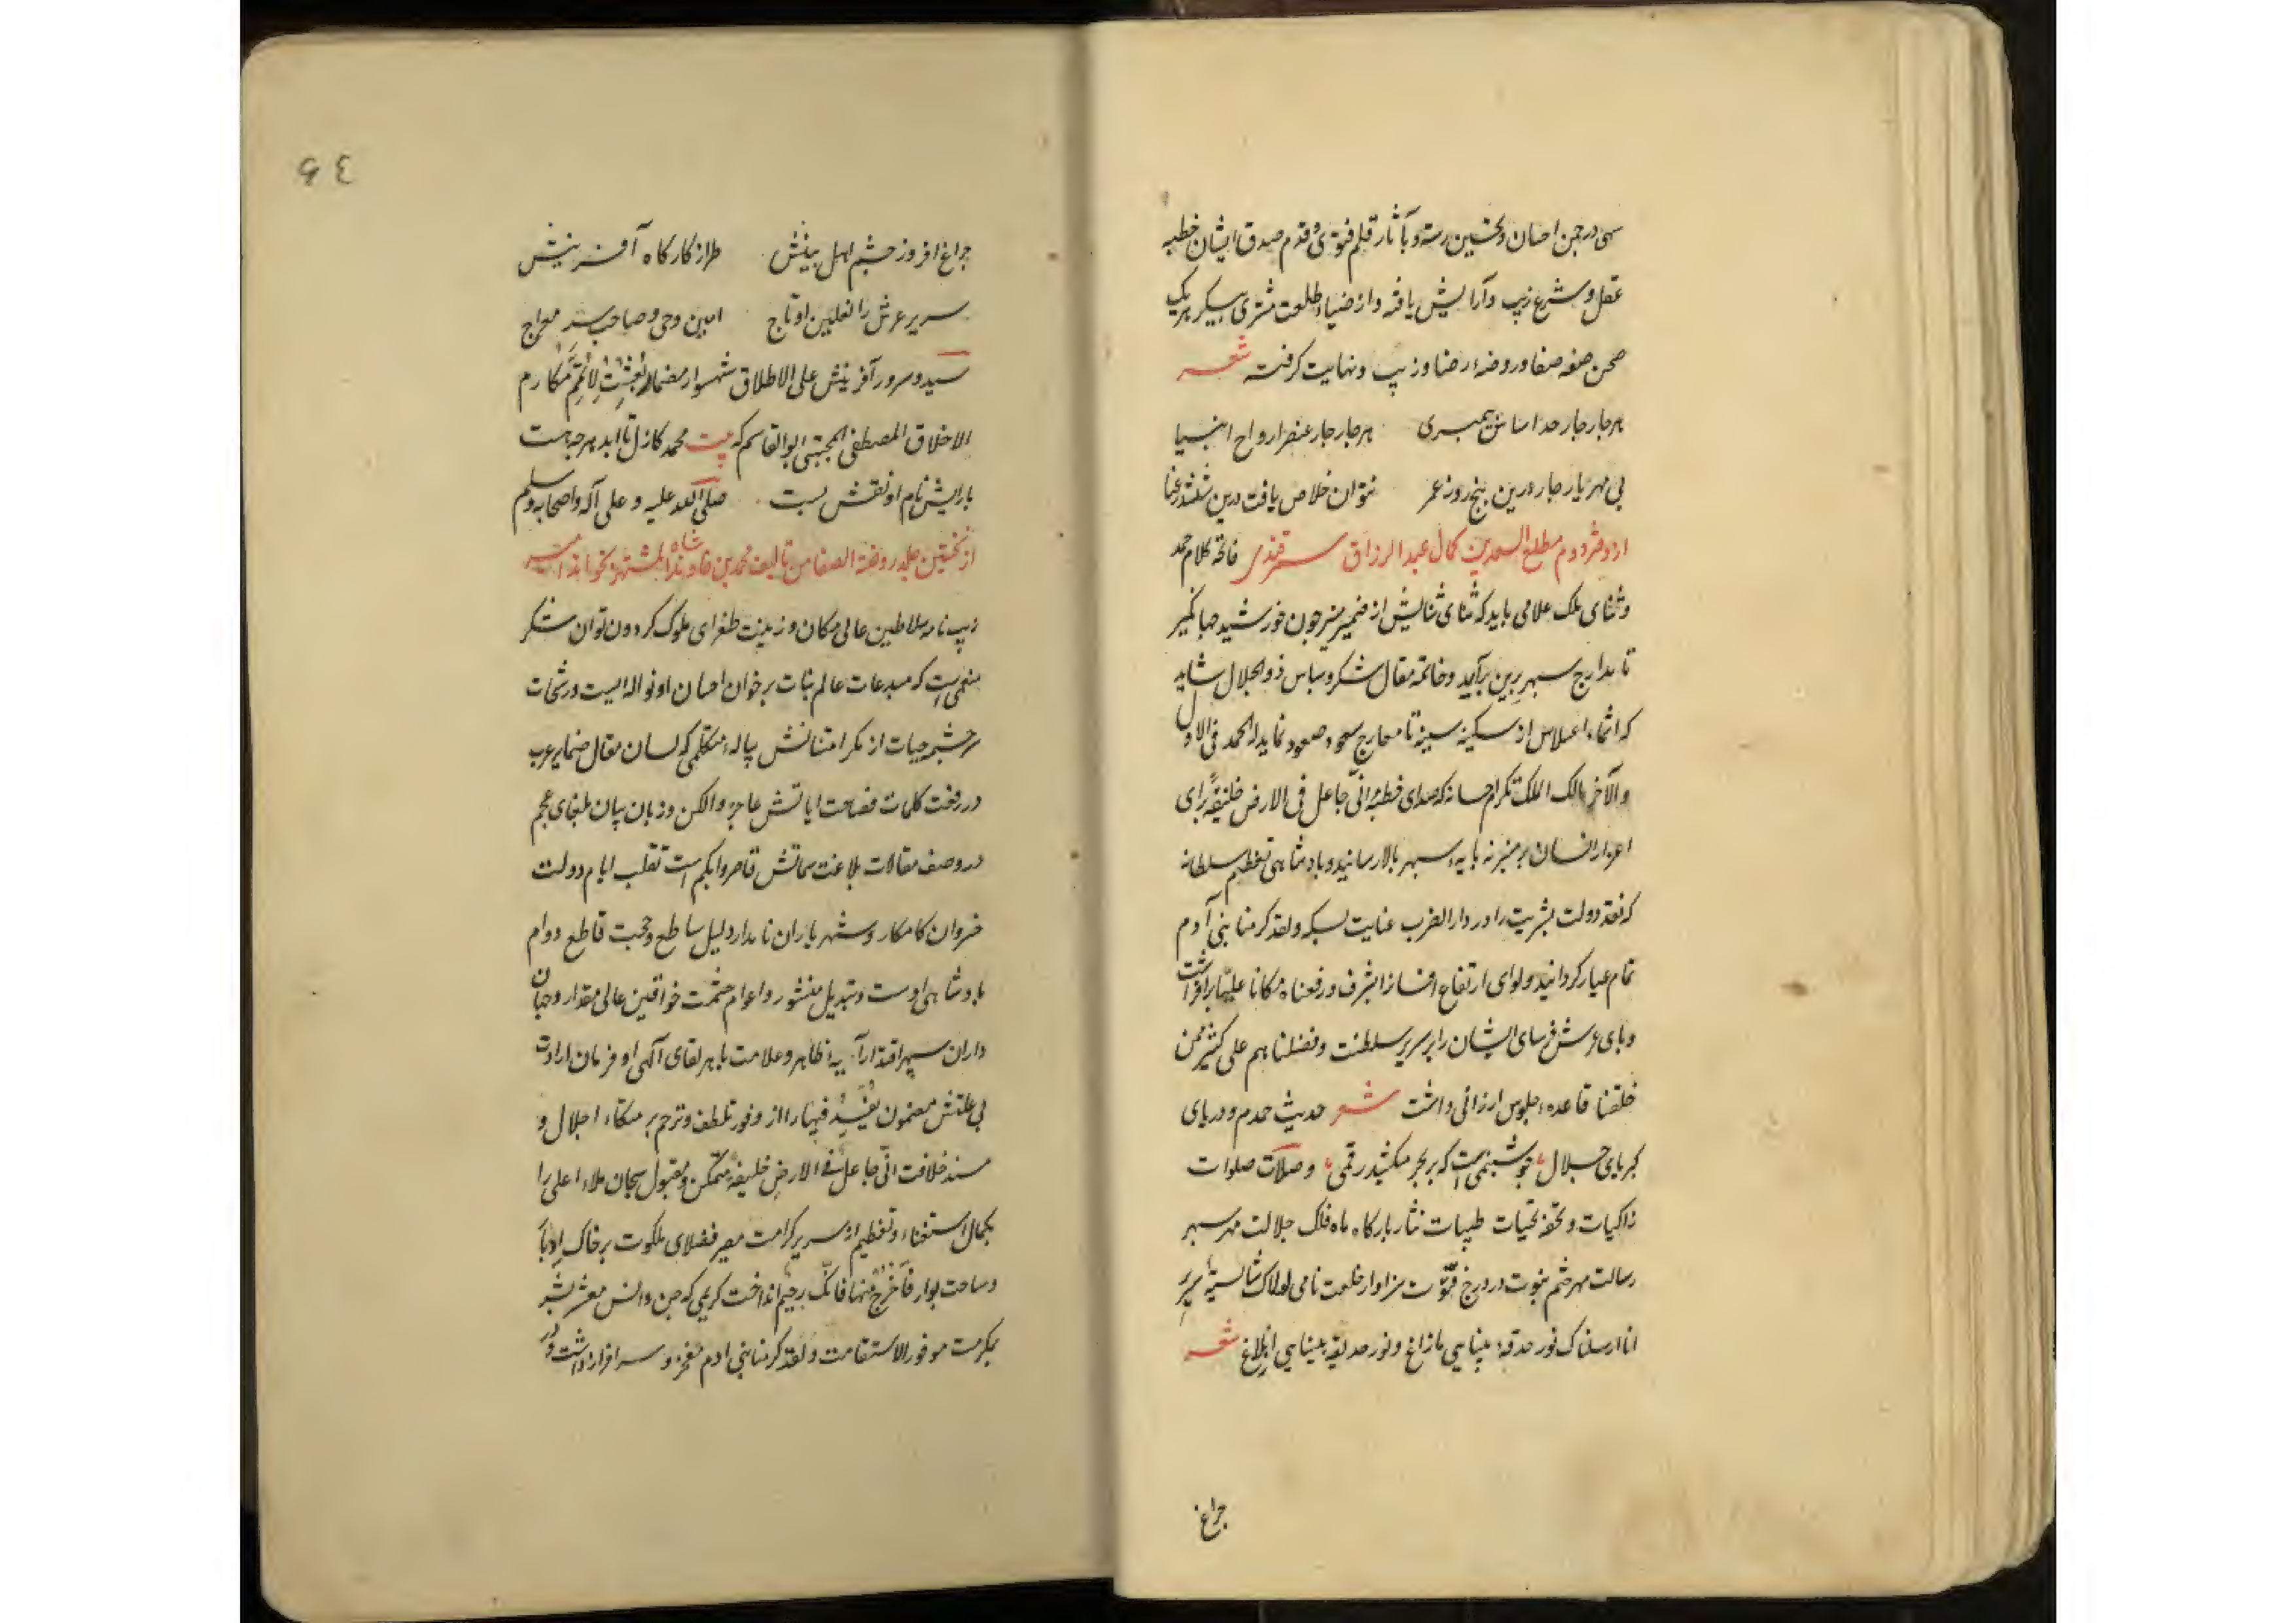 سهی در چمن احسان و تحسین رسته و بآثار قلم فتوی و قدم صدق ایشان خطبه
عقل و شرع زیب و آرایش یافته و از ضیاء طلعت مشتری پیکر هریک
صحن صفه صفا و روضه رضا و زیب و نهایت گرفته شعر
هر چار چار حد اساس پیمبری هر چار چار عنصر ارواح انبیا
بی مهر یار چار درین پنج روز عمر نتوان خلاص یافت درین ششدر عنا
از دفتر دوم مطلع السعدین کمال عبد الرزاق سمرقندی فاتحه کلام حمد
و ثنای ملک علامی باید که ثنای ثنایش از ضمیر منیر چون خورشید جهانگیر
تا مدارج سپهر برین برآید و خاتمه مقال شکر و سپاس ذو الجلال شاید
که اثماء اعلاس از سکینه سینه تا معارج سعود صعود نماید له الحمد فی الاول
والآخر مالک الملک تکرام حسانه که صدای خطبه انی جاعل فی الارض خلیفة برای
اعزاز انسان بر منبر نه پایه سپهر بالا رسانید و پادشاهی تعظیم سلطانه
که نقد دولت بشریت را در دار الضرب عنایت بسکه ولقد کرمنا بنی آدم
تمام عیار گردانید و لوای ارتفاع انسانرا بشرف ورفعناه مکانا علیا برافراشت
و پای عرش فرسای ایشان را بر سریر سلطنت وفضلناهم علی کثیر ممن
خلقنا قاعده جلوس ارزانی داشت شعر حدیث حمدم و دریای
کبریای جلال چو شبنمی است که بر بحر میکشد رقمی و صلات صلوات
زاکیات و تحف تحیات طیبات نثار بارکاه ماه فلک جلالت مهر سپهر
رسالت مهر ختم نبوت در درج فتوت سزاوار خلعت نامی لولاک شایسته سریر
انا ارسلناک نور حدقه بینایی ما زاغ و نور حدیقه بینایی ابلاغ شعر
چراغ
٤٩
چراغ افروز چشم اهل بینش طراز کارکاه آفرینش
سریر عرش را نعلین او تاج امین وحی و صاحب سر معراج
سید و سرور آفرینش علی الاطلاق شهسوار مضمار بعثت لاتمم مکارم
الاخلاق المصطفی المجتبی ابو القاسم که بیت محمد کازل تا ابد هرچه هست
بارایش نام او نقش بست صلی الله علیه و علی آله و اصحابه وسلم
از نخستین جلد روضة الصفا من تالیف محمد بن خاوند شاه المشتهر بخواند امیر
زیب نامه سلاطین عالی مکان و زینت طغرای ملوک کردون توان شکر
منعمی است که مبدعات عالم نبات بر خوان احسان او نواله ایست و رشحات
سرچشمه حیات از بکر امتنانش پیاله متکلمی که لسان مقال ضمایر عرب
در رفعت کلمات فصاحت ایاتش عاجز و الکن و زبان بیان بلغای عجم
در وصف مقالات بلاغت سماتش قاصر و ابکم است تقلب ایام دولت
خسروان کامکار و شهریاران نامدار دلیل ساطع و حجت قاطع دوام
پادشاهی اوست و تبدیل منشور و اعوام حشمت خواقین عالی مقدار و جهان
داران سپهر اقتدار آیه ظاهر و علامت باهر بقای آلهی او فرمان ارادت
بی علتش مضمون یفسد فیها را از وفور تلطف و ترحم بر متکاء اجلال و
مسند خلافت انی جاعل فی الارض خلیفة متمکن و مقبول سبحان ملاء اعلی را
بکمال استغناء و تعظیم از سریر کرامت مصر فضلای ملکوت بر خاک ادبار
و ساحت بوار فاخرج منها فانک رجیم انداخت کریمی که جن و انس معشر بشر
بمکرمت موفور الاستقامت ولقد کرمنا بنی ادم مفخر و سرافراز داشت و در